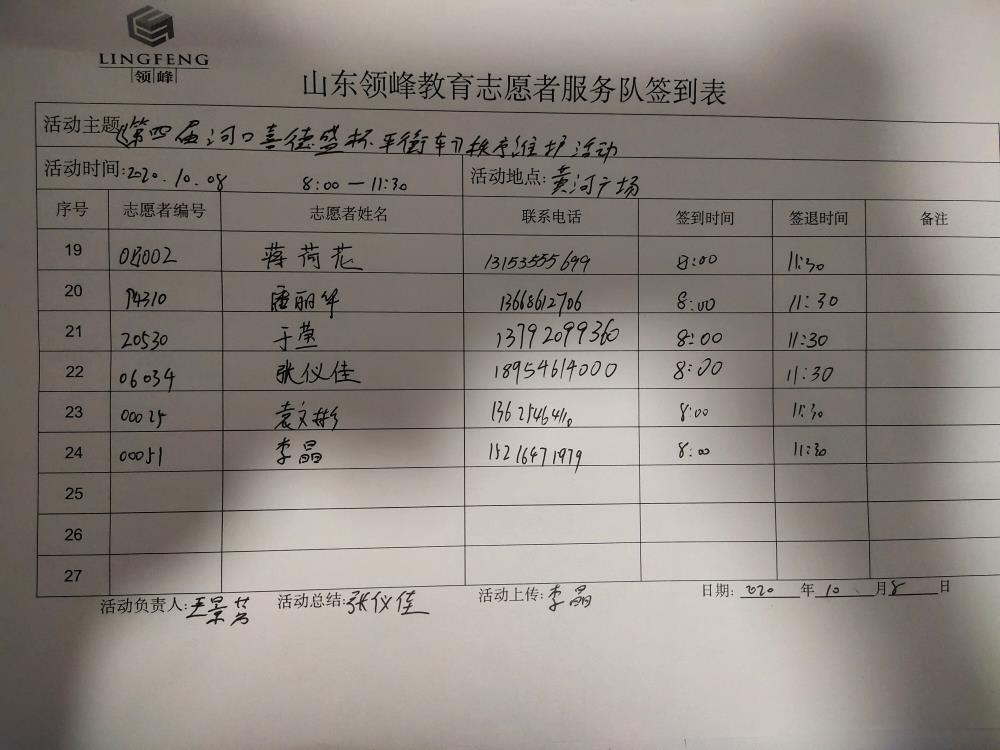 LINGFENG
领峰
山东领峰教育志愿者服务队签到表
活动主题:《第四届河口喜德盛杯平衡车》秩序维护活动
活动时间:2020.10.08 8:00—11:30 活动地点:黄河广场
序号 志愿者编号 志愿者姓名 联系电话 签到时间 签退时间 备注
19 蒋荷花 13153555699 8:00 11:30
20 唐丽华 13668612706 8:00 11:30
21 20530 于莹 13792099360 8:00 11:30
22 06034 张仪佳 18954614000 8:00 11:30
23 00025 袁文彬 8:00 11:30
24 00051 李晶 15216471979 8:00 11:30
25
26
27
活动负责人:王景芳 活动总结:张仪佳 活动上传:李晶 日期: 2020 年 10 月 8 日